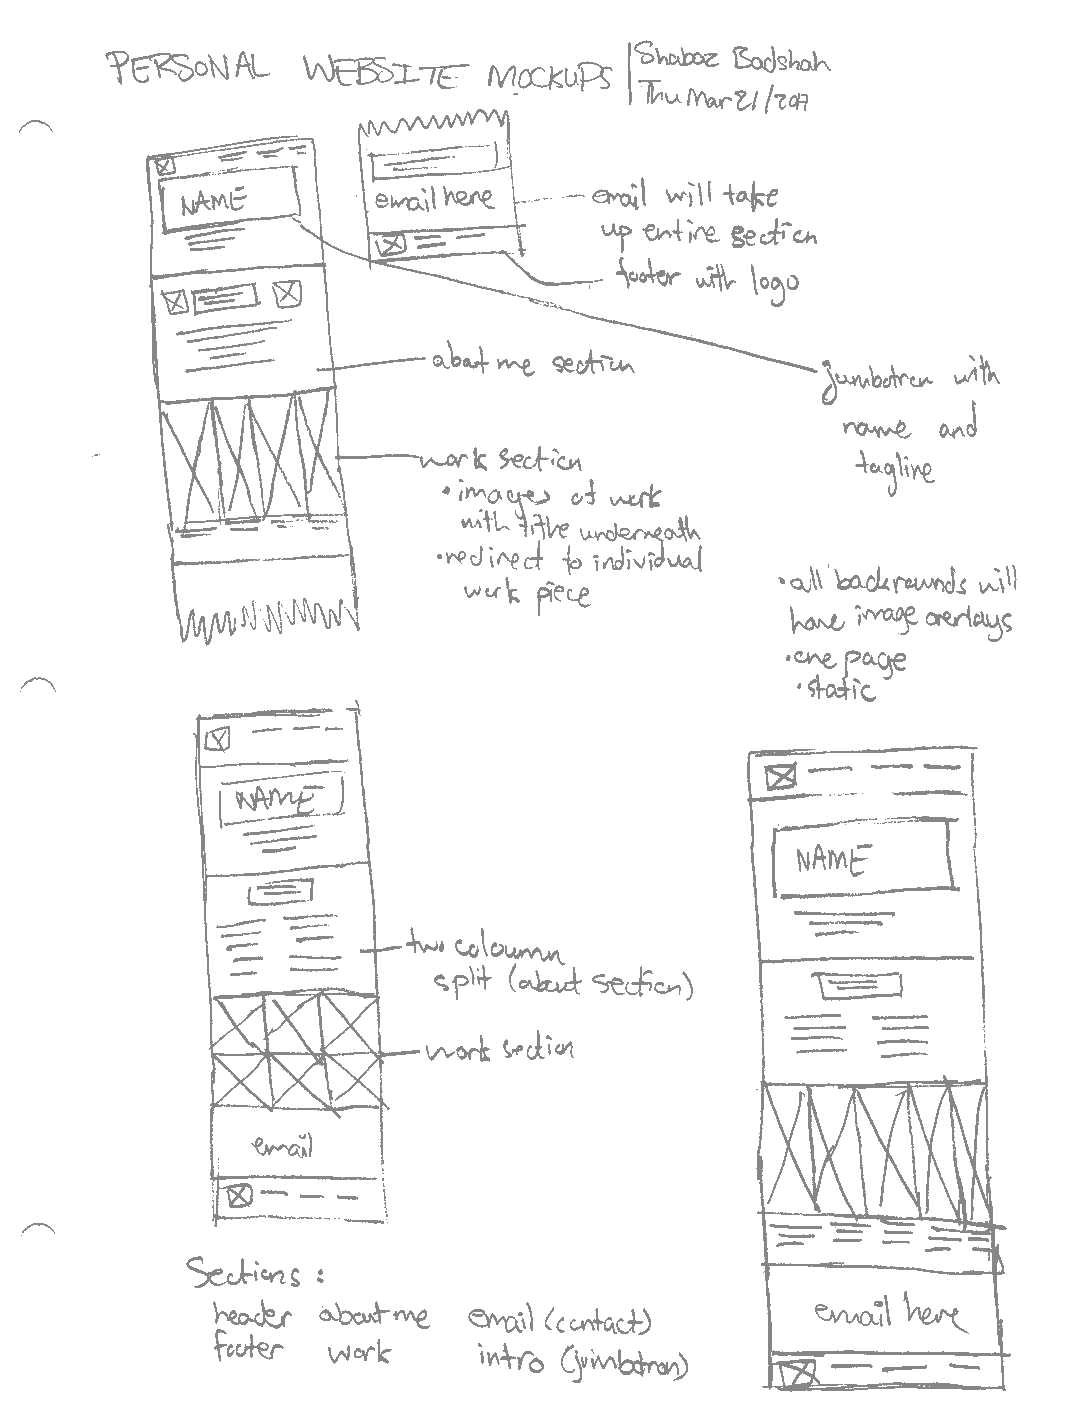 PERSONAL WEBSITE MOCKUPS
Shabaz Badshah
Thu Mar 21/2017
NAME
email here
email will take
up entire section
footer with logo
about me section
jumbotron with
name and
tagline
work section
• images of work
with titlhe underneath
• redirect to individual
work piece
• all backrounds will
have image overlays
• one page
• static
NAME
two coloumn
split (about section)
work section
email
NAME
email here
Sections :
header about me email (contact)
footer work intro (jumbotron)